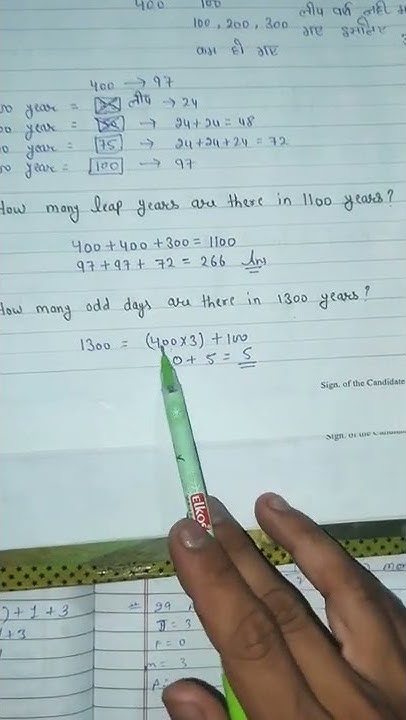 400 100
100, 200, 300 लीप वर्ष नहीं
गए इसलिए
कम हो गए
400 → 97
00 year = 25 लीप → 24
00 year = 50 → 24+24 = 48
0 year = 75 → 24+24+24 = 72
0 year = 100 → 97
How many leap years are there in 1100 years?
400 + 400 + 300 = 1100
97 + 97 + 72 = 266 Ans
How many odd days are there in 1300 years?
1300 = (400×3) + 100
0 + 5 = 5
Sign. of the Candidate
Sign. of the Candidate
Elkos
) + 1 + 3
+ 3
29
= 3
r = 0
m = 3